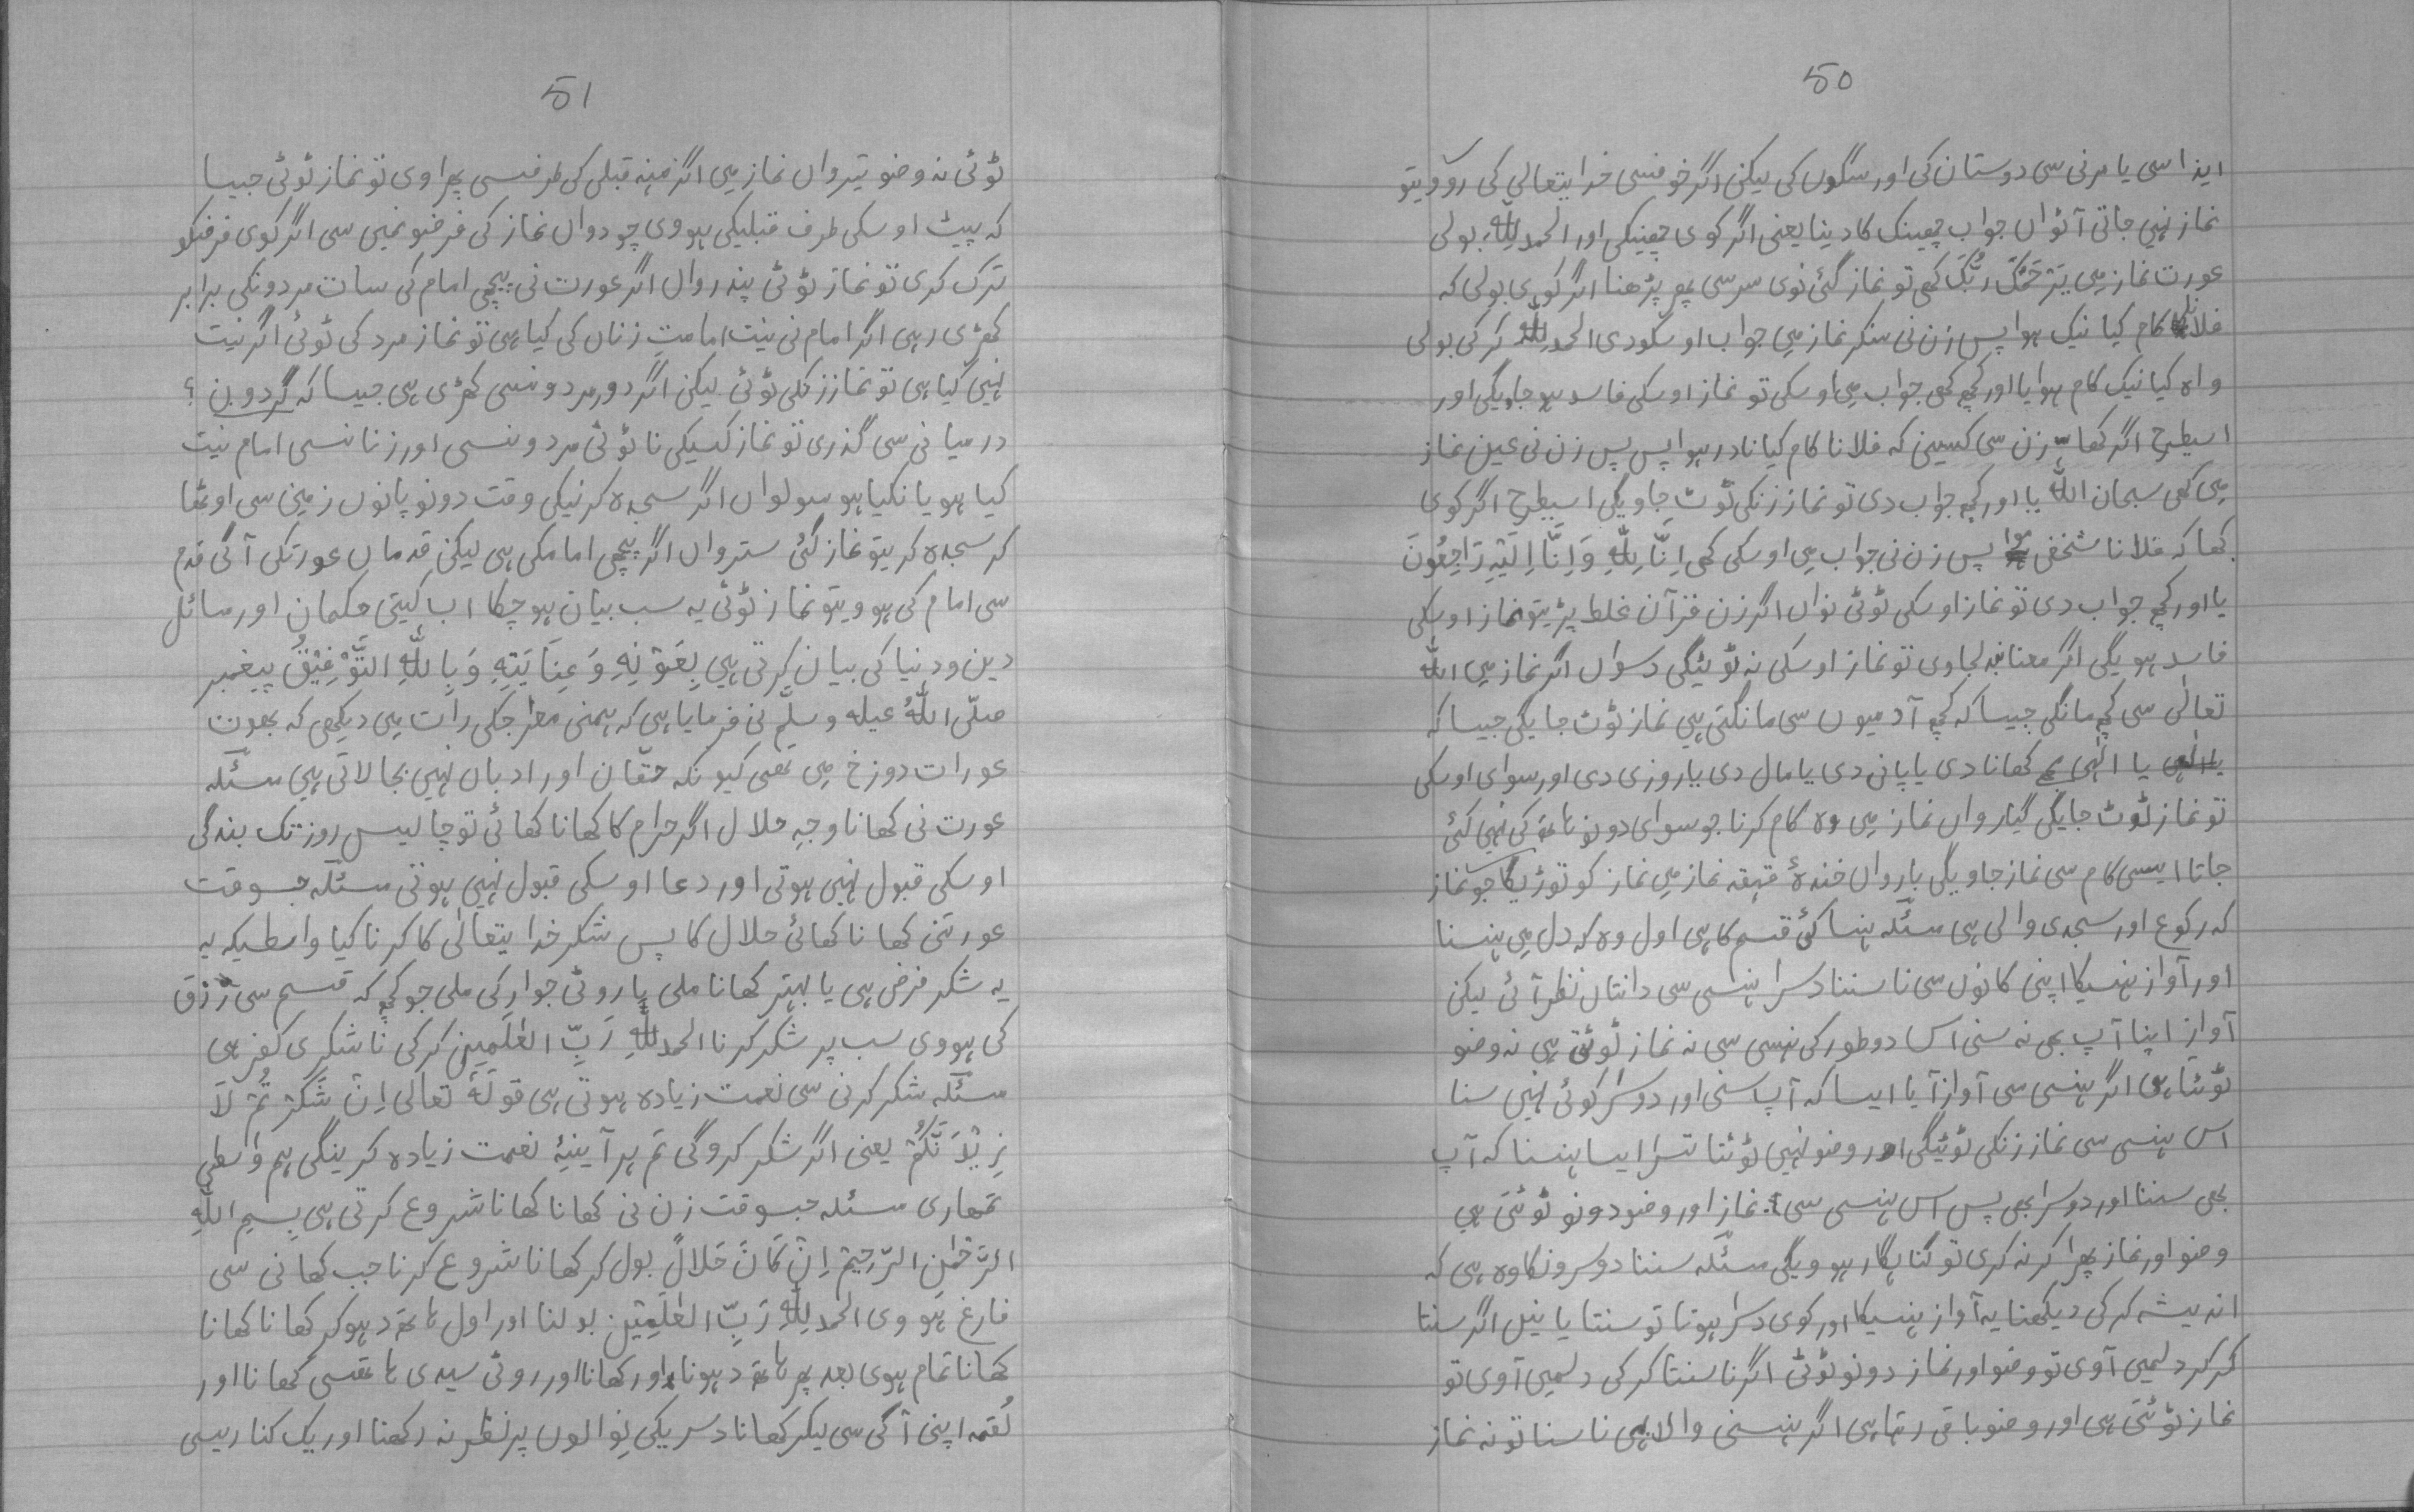 50
ایذا سی یا مرنی سی دوستان کی اور سگوں کی لیکن اگر خوفسی خدایتعالی کی روویتو
نماز نہیں جاتی آٹواں جواب چھینک کا دینا یعنی اگر کوی چھینکی اور الحمدللہ بولی
عورت نماز میں یَرْحَمُکَ رَبُّکَ کھی تو نماز گئی نوی سرسی پھر پڑھنا اگر کوی بولی کہ
فلانا کام کیا نیک ہوا پس زن نی سنکر نماز میں جواب اوسکو دی الحمدللہ کر کی بولی
واہ کیا نیک کام ہوا یا اور کچھ کھی جواب میں اوسکی تو نماز اوسکی فاسد ہو جاویگی اور
اسیطرح اگر کھا زن سی کسینی کہ فلانا کام کیا نادر ہوا پس پس زن نی عین نماز
میں کھی سبحان اللہ یا اور کچھ جواب دی تو نماز زنکی ٹوٹ جاویگی اسیطرح اگر کوی
کھا کہ فلانا شخص موا پس زن نی جواب میں اوسکی کھی اِنَّا لِلّٰہِ وَاِنَّا اِلَیْہِ رَاجِعُونَ
یا اور کچھ جواب دی تو نماز اوسکی ٹوٹی نواں اگر زن قرآن غلط پڑیتو نماز اوسکی
فاسد ہویگی اگر معنا بدلجاوی تو نماز اوسکی نہ ٹوٹیگی دسواں اگر نماز میں اللہ
تعالٰی سی کچھ مانگی جیسا کہ کچھ آدمیوں سی مانگتی ہیں نماز ٹوٹ جایگی جیسا کہ
یا الٰہی کھانا دی یا پانی دی یا مال دی یا روزی دی اور سوای اوسکی
تو نماز ٹوٹ جایگی گیارواں نماز میں وہ کام کرنا جو سوای دونو ہاتھ کی نہیں کئی
جاتا ایسی کام سی نماز جاویگی بارواں خندۂ قہقہ نماز میں نماز کو توڑیگا جو نماز
کہ رکوع اور سجدی والی ہی مسئلہ ہنسا کئی قسم کا ہی اول وہ کہ دل میں ہنسنا
اور آواز ہنسیکا اپنی کانوں سی نا سننا دسرا ہنسی سی دانتاں نظر آئی لیکن
آواز اپنا آپ بھی نہ سنی اس دو طور کی ہنسی سی نہ نماز ٹوٹتی ہی نہ وضو
ٹوٹتا ہی اگر ہنسی سی آواز آیا ایسا کہ آپ سنی اور دوسرا کوئی نہیں سنا
اس ہنسی سی نماز زنکی ٹوٹیگی اور وضو نہیں ٹوٹتا تسرا ایسا ہنسنا کہ آپ
بھی سننا اور دوسرا بھی پس اس ہنسی سی نماز اور وضو دونو ٹوٹتی ہی
وضو اور نماز پھرا کر نہ کری تو گناہگار ہوویگی مسئلہ سننا دوسرونکا وہ ہی کہ
اندیشہ کر کی دیکھنا یہ آواز ہنسیکا اور کوی دسرا ہوتا تو سنتا یا نیں اگر سنتا
کر کر دلمیں آوی تو وضو اور نماز دونو ٹوٹی اگر نا سنتا کر کی دلمیں آوی تو
نماز ٹوٹتی ہی اور وضو باقی رہتا ہی اگر ہنسنی والا ہی نا سنا تو نہ نماز
51
ٹوٹی نہ وضو تیرواں نماز میں اگر منہ قبلی کی طرفسی پھراوی تو نماز ٹوٹی جیسا
کہ پیٹ اوسکی طرف قبلیکی ہووی چودواں نماز کی فرضو نمیں سی اگر کوی فرضکو
ترک کری تو نماز ٹوٹی پندرواں اگر عورت نی پیچھی امام کی سات مردونکی برابر
کھڑی رہی اگر امام نی نیت امامتِ زناں کی کیا ہی تو نماز مرد کی ٹوٹی اگر نیت
نہیں کیا ہی تو نماز زنکی ٹوٹی لیکن اگر دور مردونسی کھڑی ہی جیسا کہ گردون ؟
درمیانی سی گذری تو نماز کسیکی نا ٹوٹی مردونسی اور زنانسی امام نیت
کیا ہو یا نکیا ہو سولواں اگر سجدہ کرنیکی وقت دونو پانوں زمین سی اوٹھا
کر سجدہ کریتو نماز گئی سترواں اگر پیچھی امامکی ہی لیکن قدماں عورتکی آگی قدم
سی امام کی ہوویتو نماز ٹوٹی یہ سب بیان ہوچکا اب کیتی حکمان اور مسائل
دین و دنیا کی بیان کرتی ہیں بِعَوْنِہٖ وَعِنَایَتِہٖ وَبِاللّٰہِ التَّوْفِیْقُ پیغمبر
صلّی اللہُ علیہ وسلّم نی فرمایا ہی کہ ہمنی معراجکی رات میں دیکھی کہ بھوت
عورات دوزخ میں تھی کیونکہ حقّان اور ادبان نہیں بجا لاتی ہیں مسئلہ
عورت نی کھانا وجہِ حلال اگر حرام کا کھانا کھائی تو چالیس روز تک بندگی
اوسکی قبول نہیں ہوتی اور دعا اوسکی قبول نہیں ہوتی مسئلہ جسوقت
عورتنی کھانا کھائی حلال کا پس شکر خدایتعالٰی کا کرنا کیا واسطیکہ یہ
یہ شکر فرض ہی یا بہتر کھانا ملی یا روٹی جوار کی ملی جو کچھ کہ قسم سی رزق
کی ہووی سب پر شکر کرنا الحمدللہِ رَبِّ العٰلَمِین کر کی نا شکری کفر ہی
مسئلہ شکر کرنی سی نعمت زیادہ ہوتی ہی قولہٗ تعالی اِنْ شَکَرْ تُمْ لَاَ
زِیْدَنَّکُمْ یعنی اگر شکر کروگی تم ہر آیینیۂ نعمت زیادہ کرینگی ہم واسطی
تمھاری مسئلہ جسوقت زن نی کھانا کھانا شروع کرتی ہی بِسمِ اللہِ
الرَّحْمٰنِ الرَّحِیْمْ اِنْ کَانَ حَلَالً بول کر کھانا شروع کرنا جب کھانی سی
فارغ ہووی الحمدللہِ رَبِّ العٰلَمِیْن بولنا اور اول ہاتھ دہوکر کھانا کھانا
کھانا تمام ہوی بعد پھر ہاتھ دہونا اور کھانا اور روٹی سیدی ہاتھسی کھانا اور
لُقمہ اپنی آگی سی لیکر کھانا دسریکی نِوالوں پر نظر نہ رکھنا اور یک کناریسی